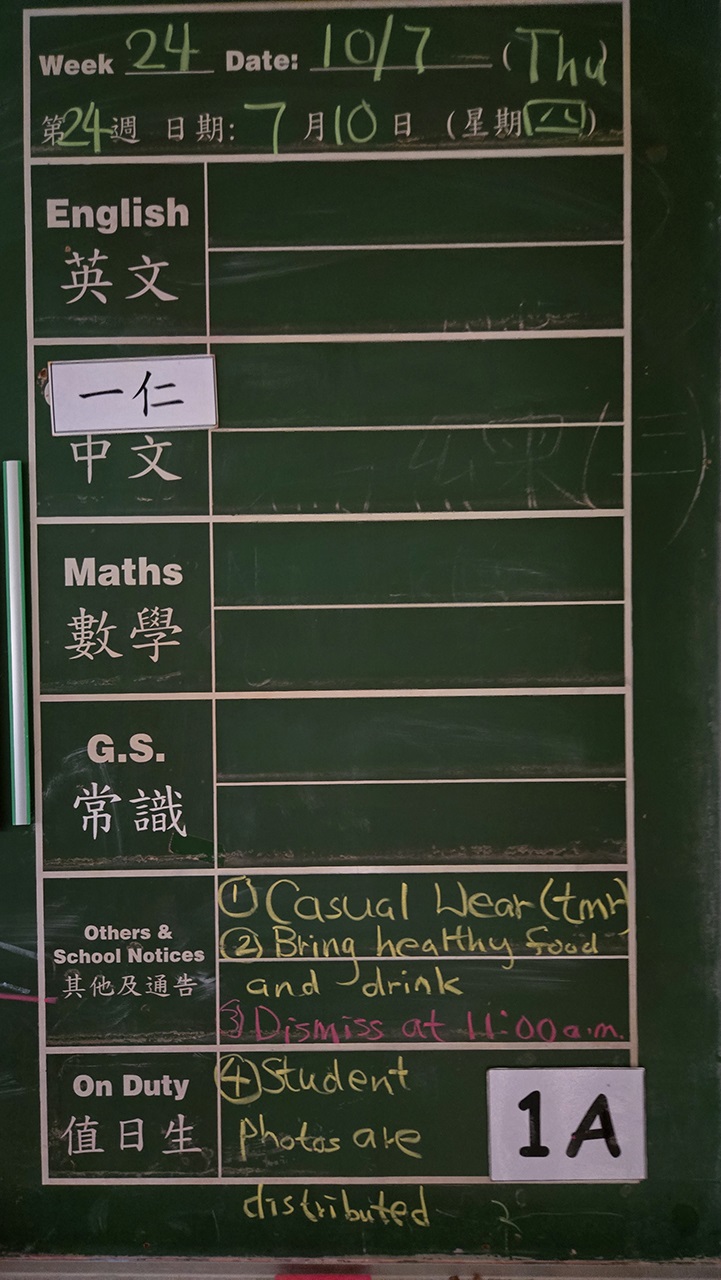 Week 24 Date: 10/7 (Thu)
第24週 日期: 7月10日 (星期四)
English
英文
一仁
中文
Maths
數學
G.S.
常識
Others &
School Notices
其他及通告
① Casual Wear (tmr)
② Bring healthy food
and drink
③ Dismiss at 11:00 a.m.
On Duty
值日生
④ Student
photos are
distributed
1A